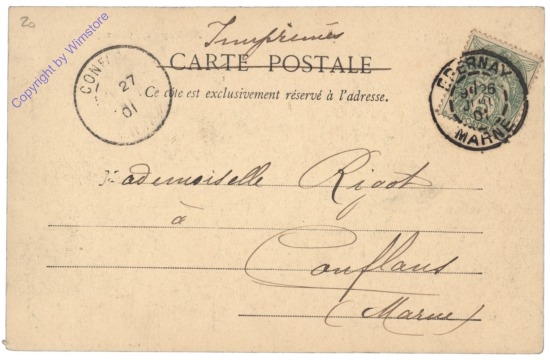 20
Copyright by Wimstore
Imprimés
CARTE POSTALE
Ce côté est exclusivement réservé à l'adresse.
CONFL
27
01
EPERNAY
26
01
MARNE
Mademoiselle Rigot
à
Conflans
(Marne)